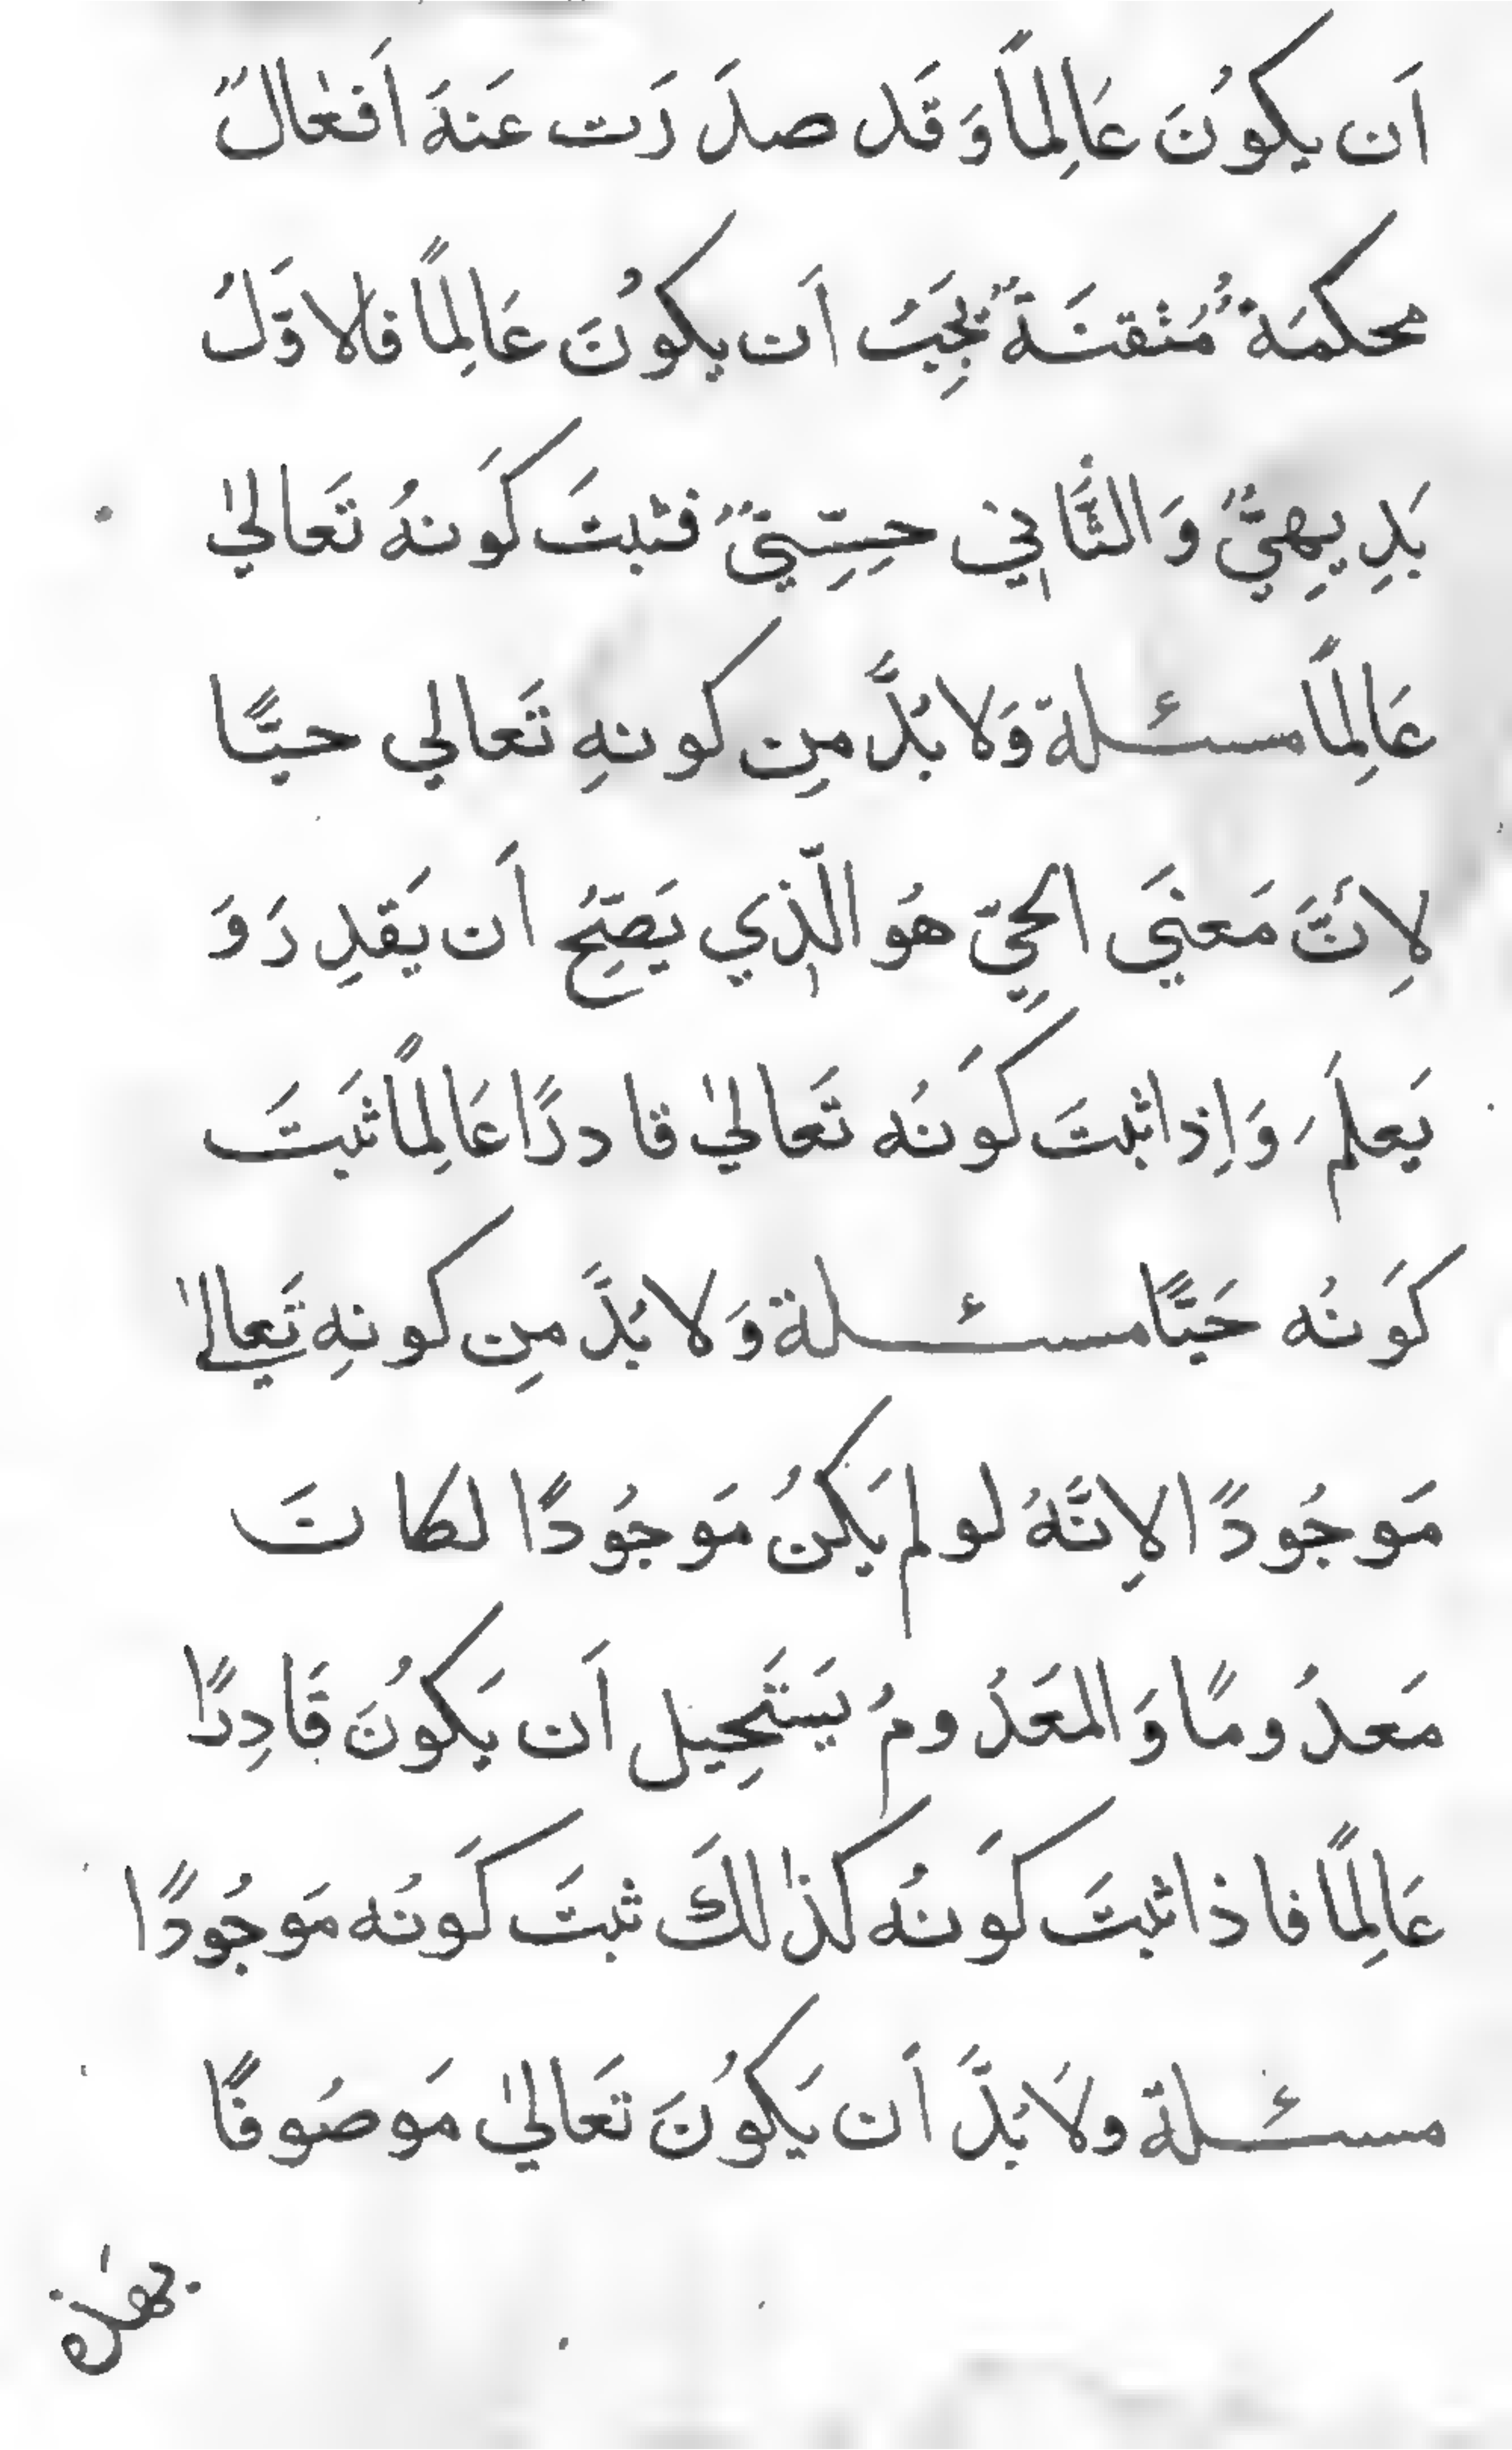 اَن يكوُنَ عَالِمًا وَقَد صدَرَت عَنهُ اَفعٰالٌ
محكمَةٌ مُتقنَةٌ يَجِبُ اَن يكوُنَ عَالِمًا فالاوَّلُ
بَدِيهِيٌّ وَالثَّانِي حِسِّيٌّ فثبتَ كَونهُ تَعاليٰ
عَالِمًا مسئلة وَلا بُدَّ مِن كونهِ تَعالي حيًّا
لِانَّ مَعنَي الحيِّ هُو الّذِي يَصِحُّ اَن يَقدِرَ وَ
يَعلَمَ وَاِذا ثبتَ كَونُه تَعاليٰ قادرًا عَالِمًا ثَبتَ
كَونُه حَيًّا مسئلة وَلا بُدَّ مِن كونهِ تَعاليٰ
مَوجُودًا لاِنَّهُ لو لم يَكنُ مَوجُودًا لكانَ
مَعدُومًا وَالمعَدُومُ يَستَحِيل اَن يَكوُنَ قَادِرًا
عَالِمًا فاذا ثبتَ كَونُه كذٰلكَ ثبتَ كَونُه مَوجُودًا
مسئلة ولاَ بُدَّ اَن يَكوُنَ تَعَاليٰ مَوصُوفًا
بهٰذه